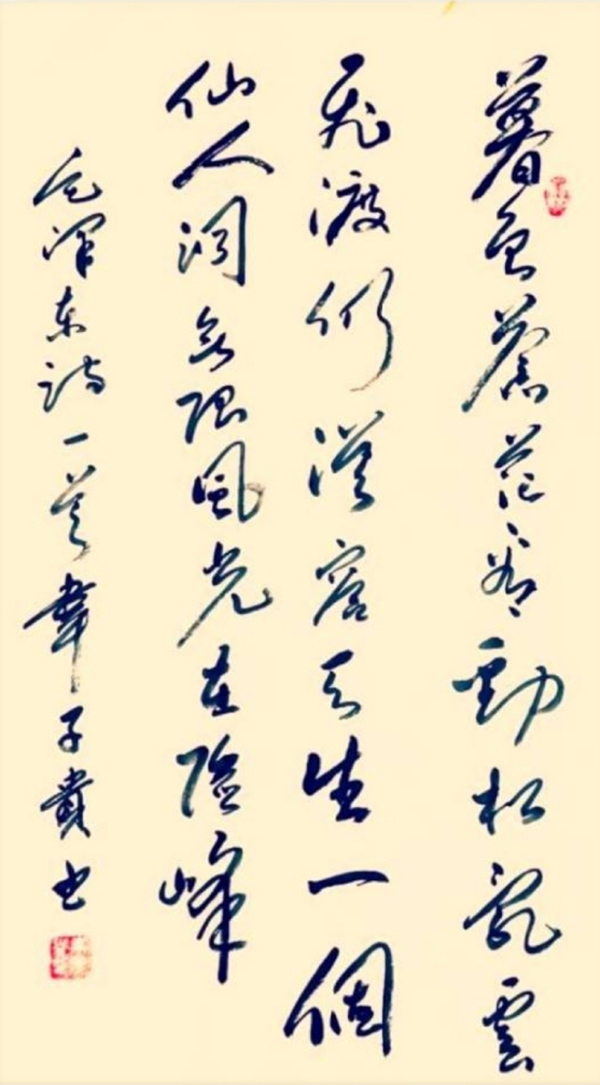 暮色蒼茫看勁松亂雲
飛渡仍從容天生一個
仙人洞無限風光在險峰
毛澤東詩一首韋子貴書